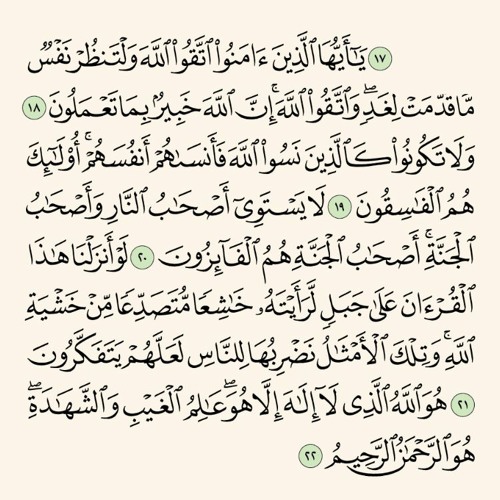 ١٧ يَٰٓأَيُّهَا ٱلَّذِينَ ءَامَنُوا۟ ٱتَّقُوا۟ ٱللَّهَ وَلْتَنظُرْ نَفْسٌ
مَّا قَدَّمَتْ لِغَدٍۖ وَٱتَّقُوا۟ ٱللَّهَۚ إِنَّ ٱللَّهَ خَبِيرٌۢ بِمَا تَعْمَلُونَ ١٨
وَلَا تَكُونُوا۟ كَٱلَّذِينَ نَسُوا۟ ٱللَّهَ فَأَنسَىٰهُمْ أَنفُسَهُمْۚ أُو۟لَٰٓئِكَ
هُمُ ٱلْفَٰسِقُونَ ١٩ لَا يَسْتَوِىٓ أَصْحَٰبُ ٱلنَّارِ وَأَصْحَٰبُ
ٱلْجَنَّةِۚ أَصْحَٰبُ ٱلْجَنَّةِ هُمُ ٱلْفَآئِزُونَ ٢٠ لَوْ أَنزَلْنَا هَٰذَا
ٱلْقُرْءَانَ عَلَىٰ جَبَلٍ لَّرَأَيْتَهُۥ خَٰشِعًا مُّتَصَدِّعًا مِّنْ خَشْيَةِ
ٱللَّهِۚ وَتِلْكَ ٱلْأَمْثَٰلُ نَضْرِبُهَا لِلنَّاسِ لَعَلَّهُمْ يَتَفَكَّرُونَ
٢١ هُوَ ٱللَّهُ ٱلَّذِى لَآ إِلَٰهَ إِلَّا هُوَۖ عَٰلِمُ ٱلْغَيْبِ وَٱلشَّهَٰدَةِۖ
هُوَ ٱلرَّحْمَٰنُ ٱلرَّحِيمُ ٢٢